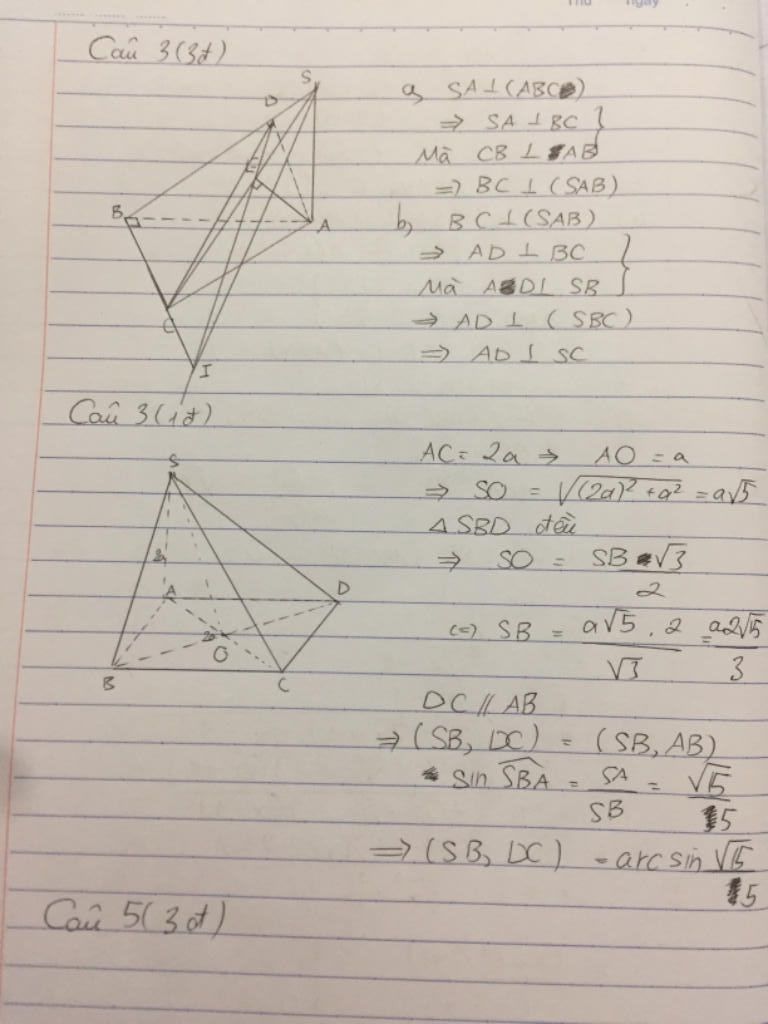 Thứ ngày
Câu 3 (3đ)
S
D
E
B
A
C
I
a, SA ⊥ (ABC)
⇒ SA ⊥ BC }
Mà CB ⊥ AB
⇒ BC ⊥ (SAB)
b, BC ⊥ (SAB)
⇒ AD ⊥ BC }
Mà AD ⊥ SB
⇒ AD ⊥ (SBC)
⇒ AD ⊥ SC
Câu 3 (1đ)
S
A
D
O
B
C
AC = 2a ⇒ AO = a
⇒ SO = √((2a)² + a²) = a√5
△SBD đều
⇒ SO = SB √3 / 2
(=) SB = a√5 . 2 / √3 = a2√15 / 3
DC // AB
⇒ (SB, DC) = (SB, AB)
sin SBA = SA / SB = √15 / 5
⇒ (SB, DC) = arc sin √15 / 5
Câu 5 (3đ)